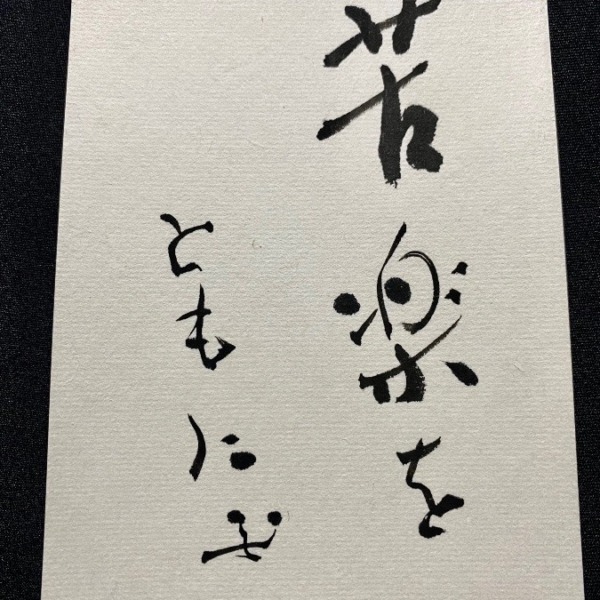 苦楽を
ともに